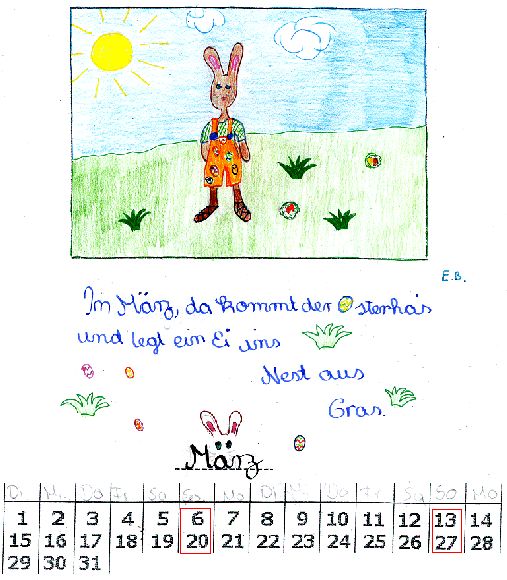 E.B.
Im März, da kommt der Osterhas
und legt ein Ei ins
Nest aus
Gras.
März
Di Mi Do Fr Sa So Mo Di Mi Do Fr Sa So Mo
1 2 3 4 5 6 7 8 9 10 11 12 13 14
15 16 17 18 19 20 21 22 23 24 25 26 27 28
29 30 31